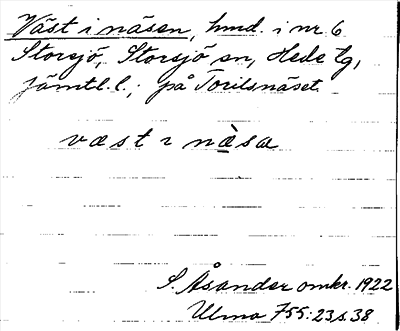 Väst i näsen, hmd. i nr 6
Storsjö, Storsjö sn, Hede tg,
Jämtl. l.; på Torilsnäset.
væst ı næ̀sa
S. Åsander omkr. 1922
Ulma 755:23 s. 38